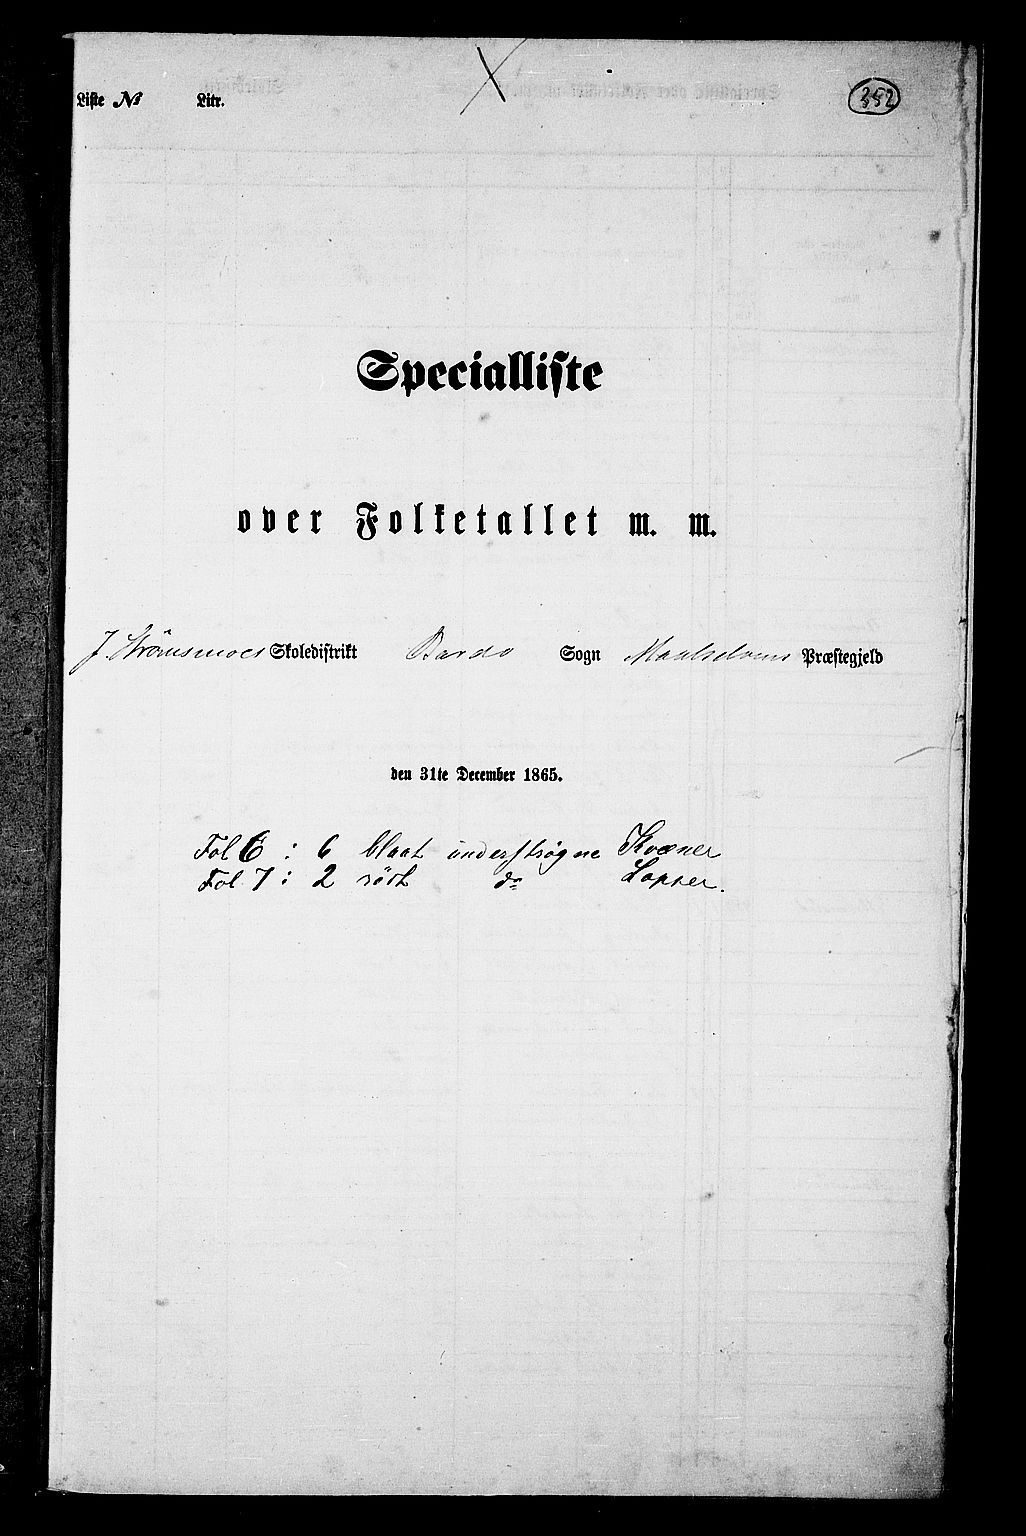 Liste № Litr.
352
Specialliste
over Folketallet m. m.
J Strömsmoes Skoledistrikt Bardo Sogn Maalselvens Præstegjeld
den 31te December 1865.
Fol 6 : 6 blaat understrøgne Kvæner
Fol 7 : 2 rödt do Lapper.